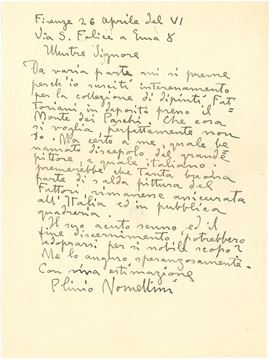 Firenze 26 aprile del VI
Via S. Felice a Ema 8
Illustre Signore
Da varia parte mi si preme
perch'io susciti interessamento
per la collezione di dipinti Fat-
toriani, in deposito presso il
Monte dei Paschi. Che cosa
si voglia, perfettamente non
so. Ma certo a me, quale be
niamato discepolo del grande
pittore, e quale italiano
premerebbe che tanta buona
parte di salda pittura del
Fattori, rimanesse assicurata
all'Italia ed in pubblica
quadreria.
Il suo acuto senno ed il
fine discernimento potrebbero
adoprarsi per sì nobile scopo?
Me lo auguro speranzosamente.
Con viva estimazione
Plinio Nomellini